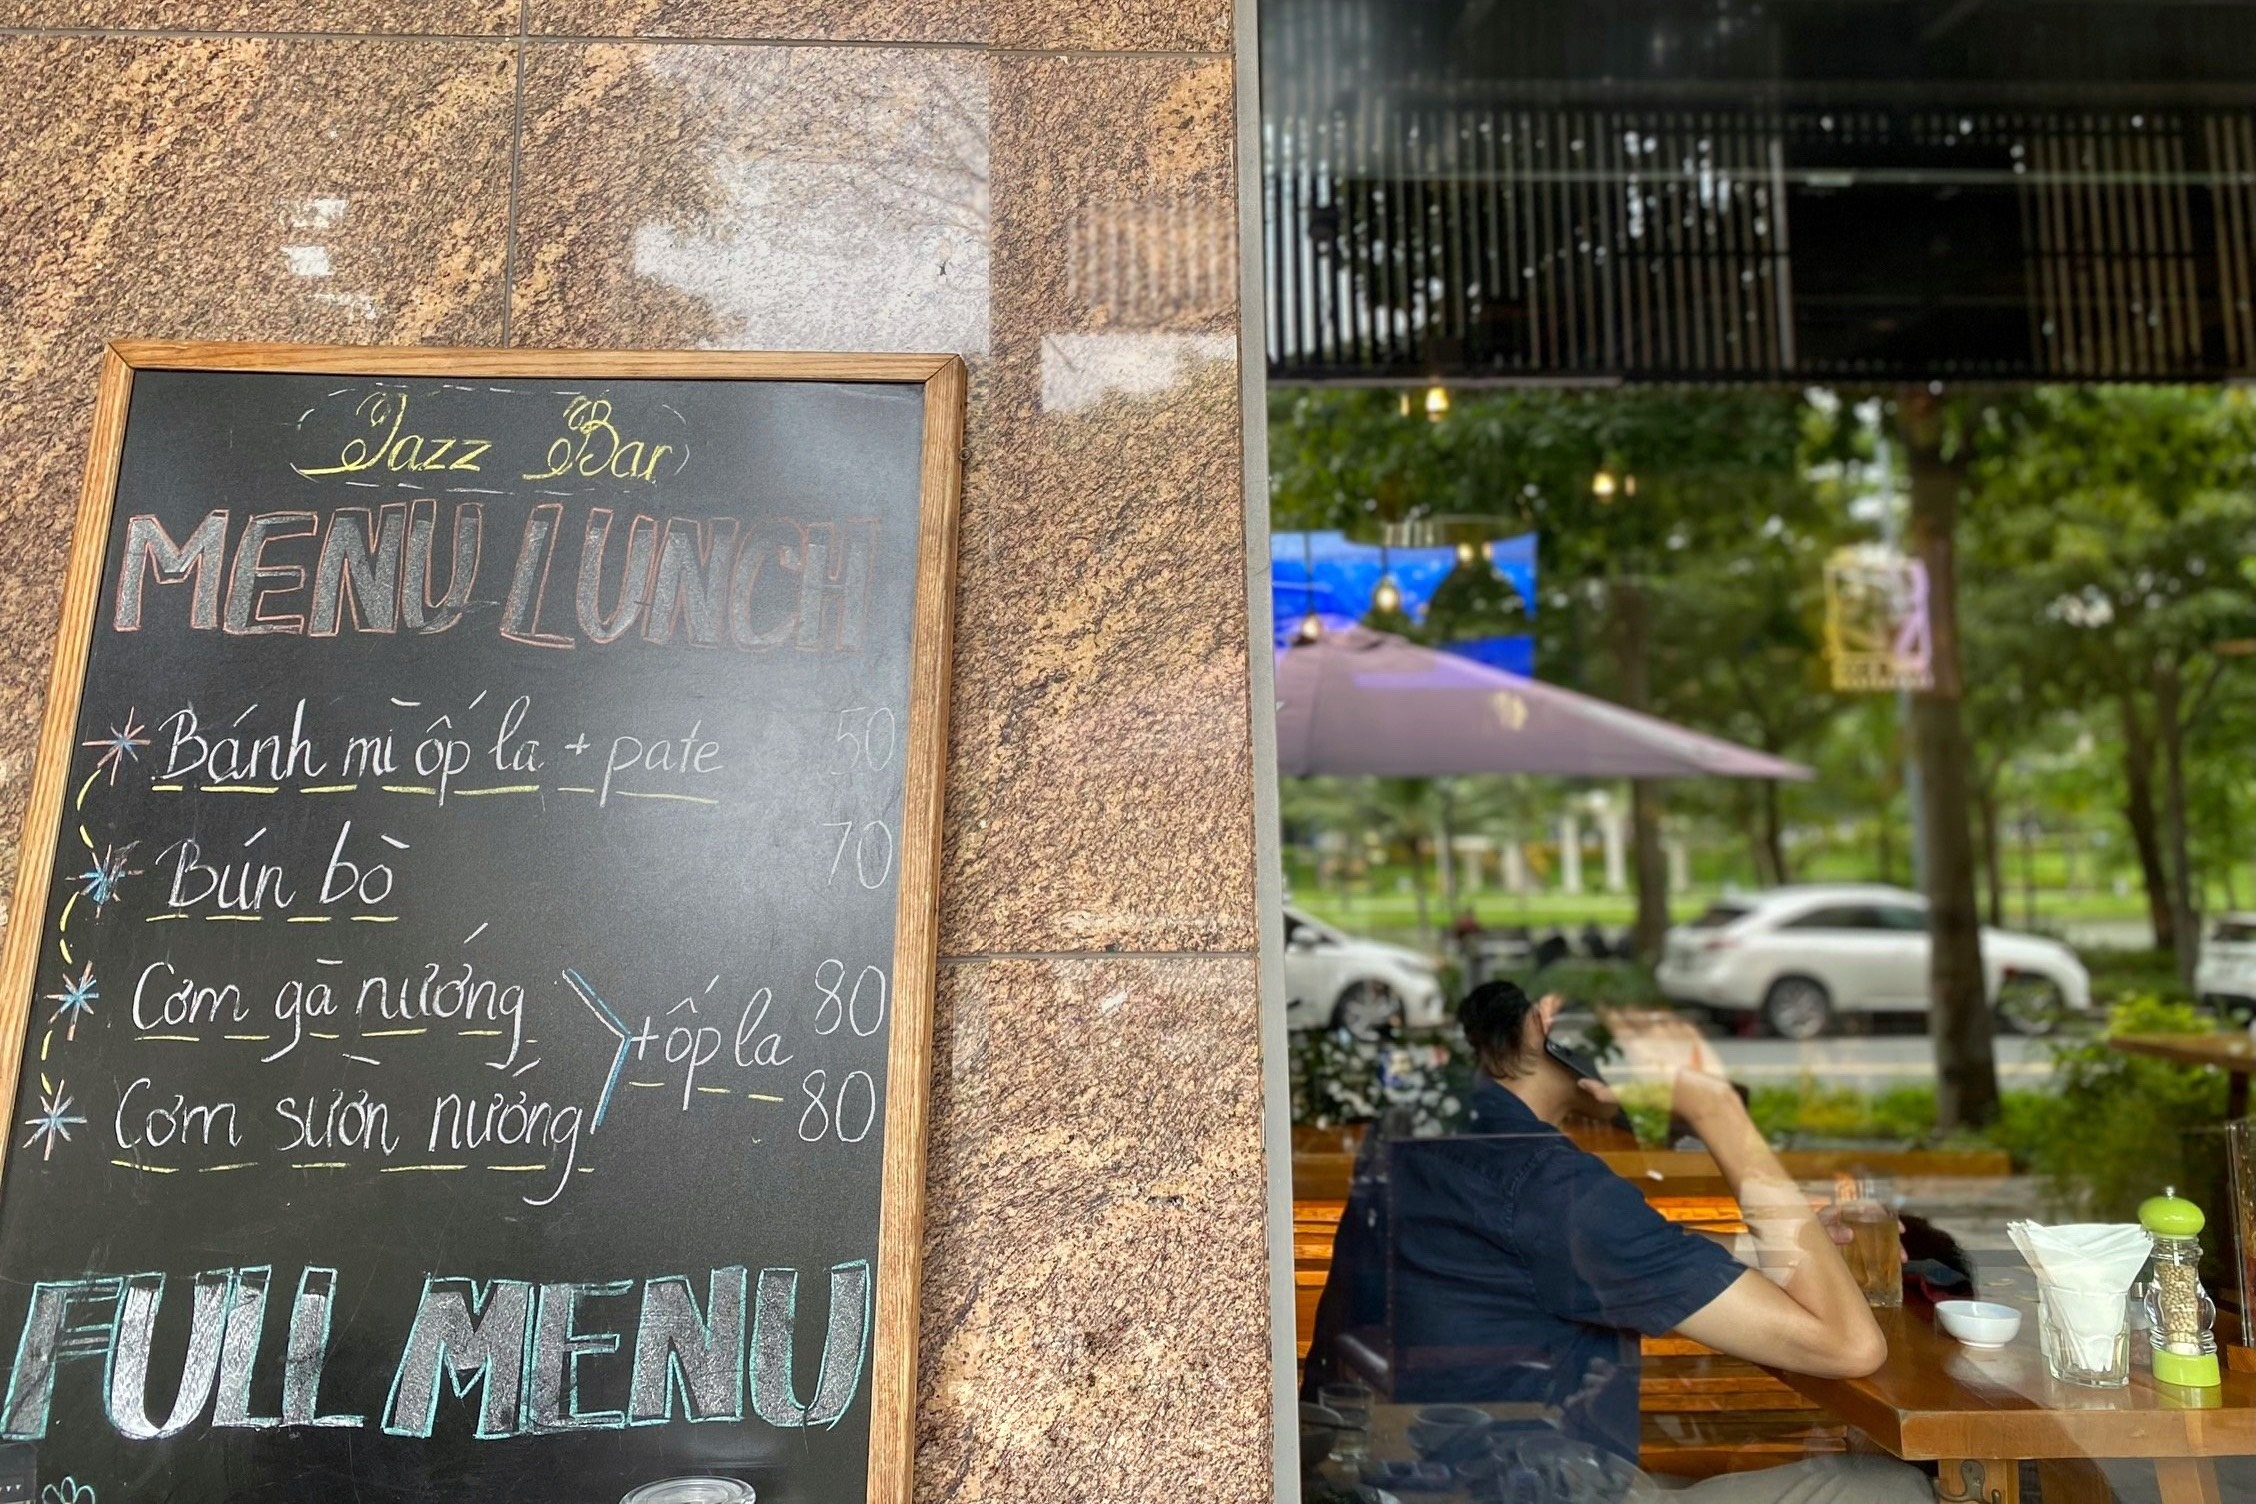 Jazz Bar
MENU LUNCH
Bánh mì ốp la + pate 50
Bún bò 70
Cơm gà nướng 80
+ ốp la
Cơm sườn nướng 80
FULL MENU